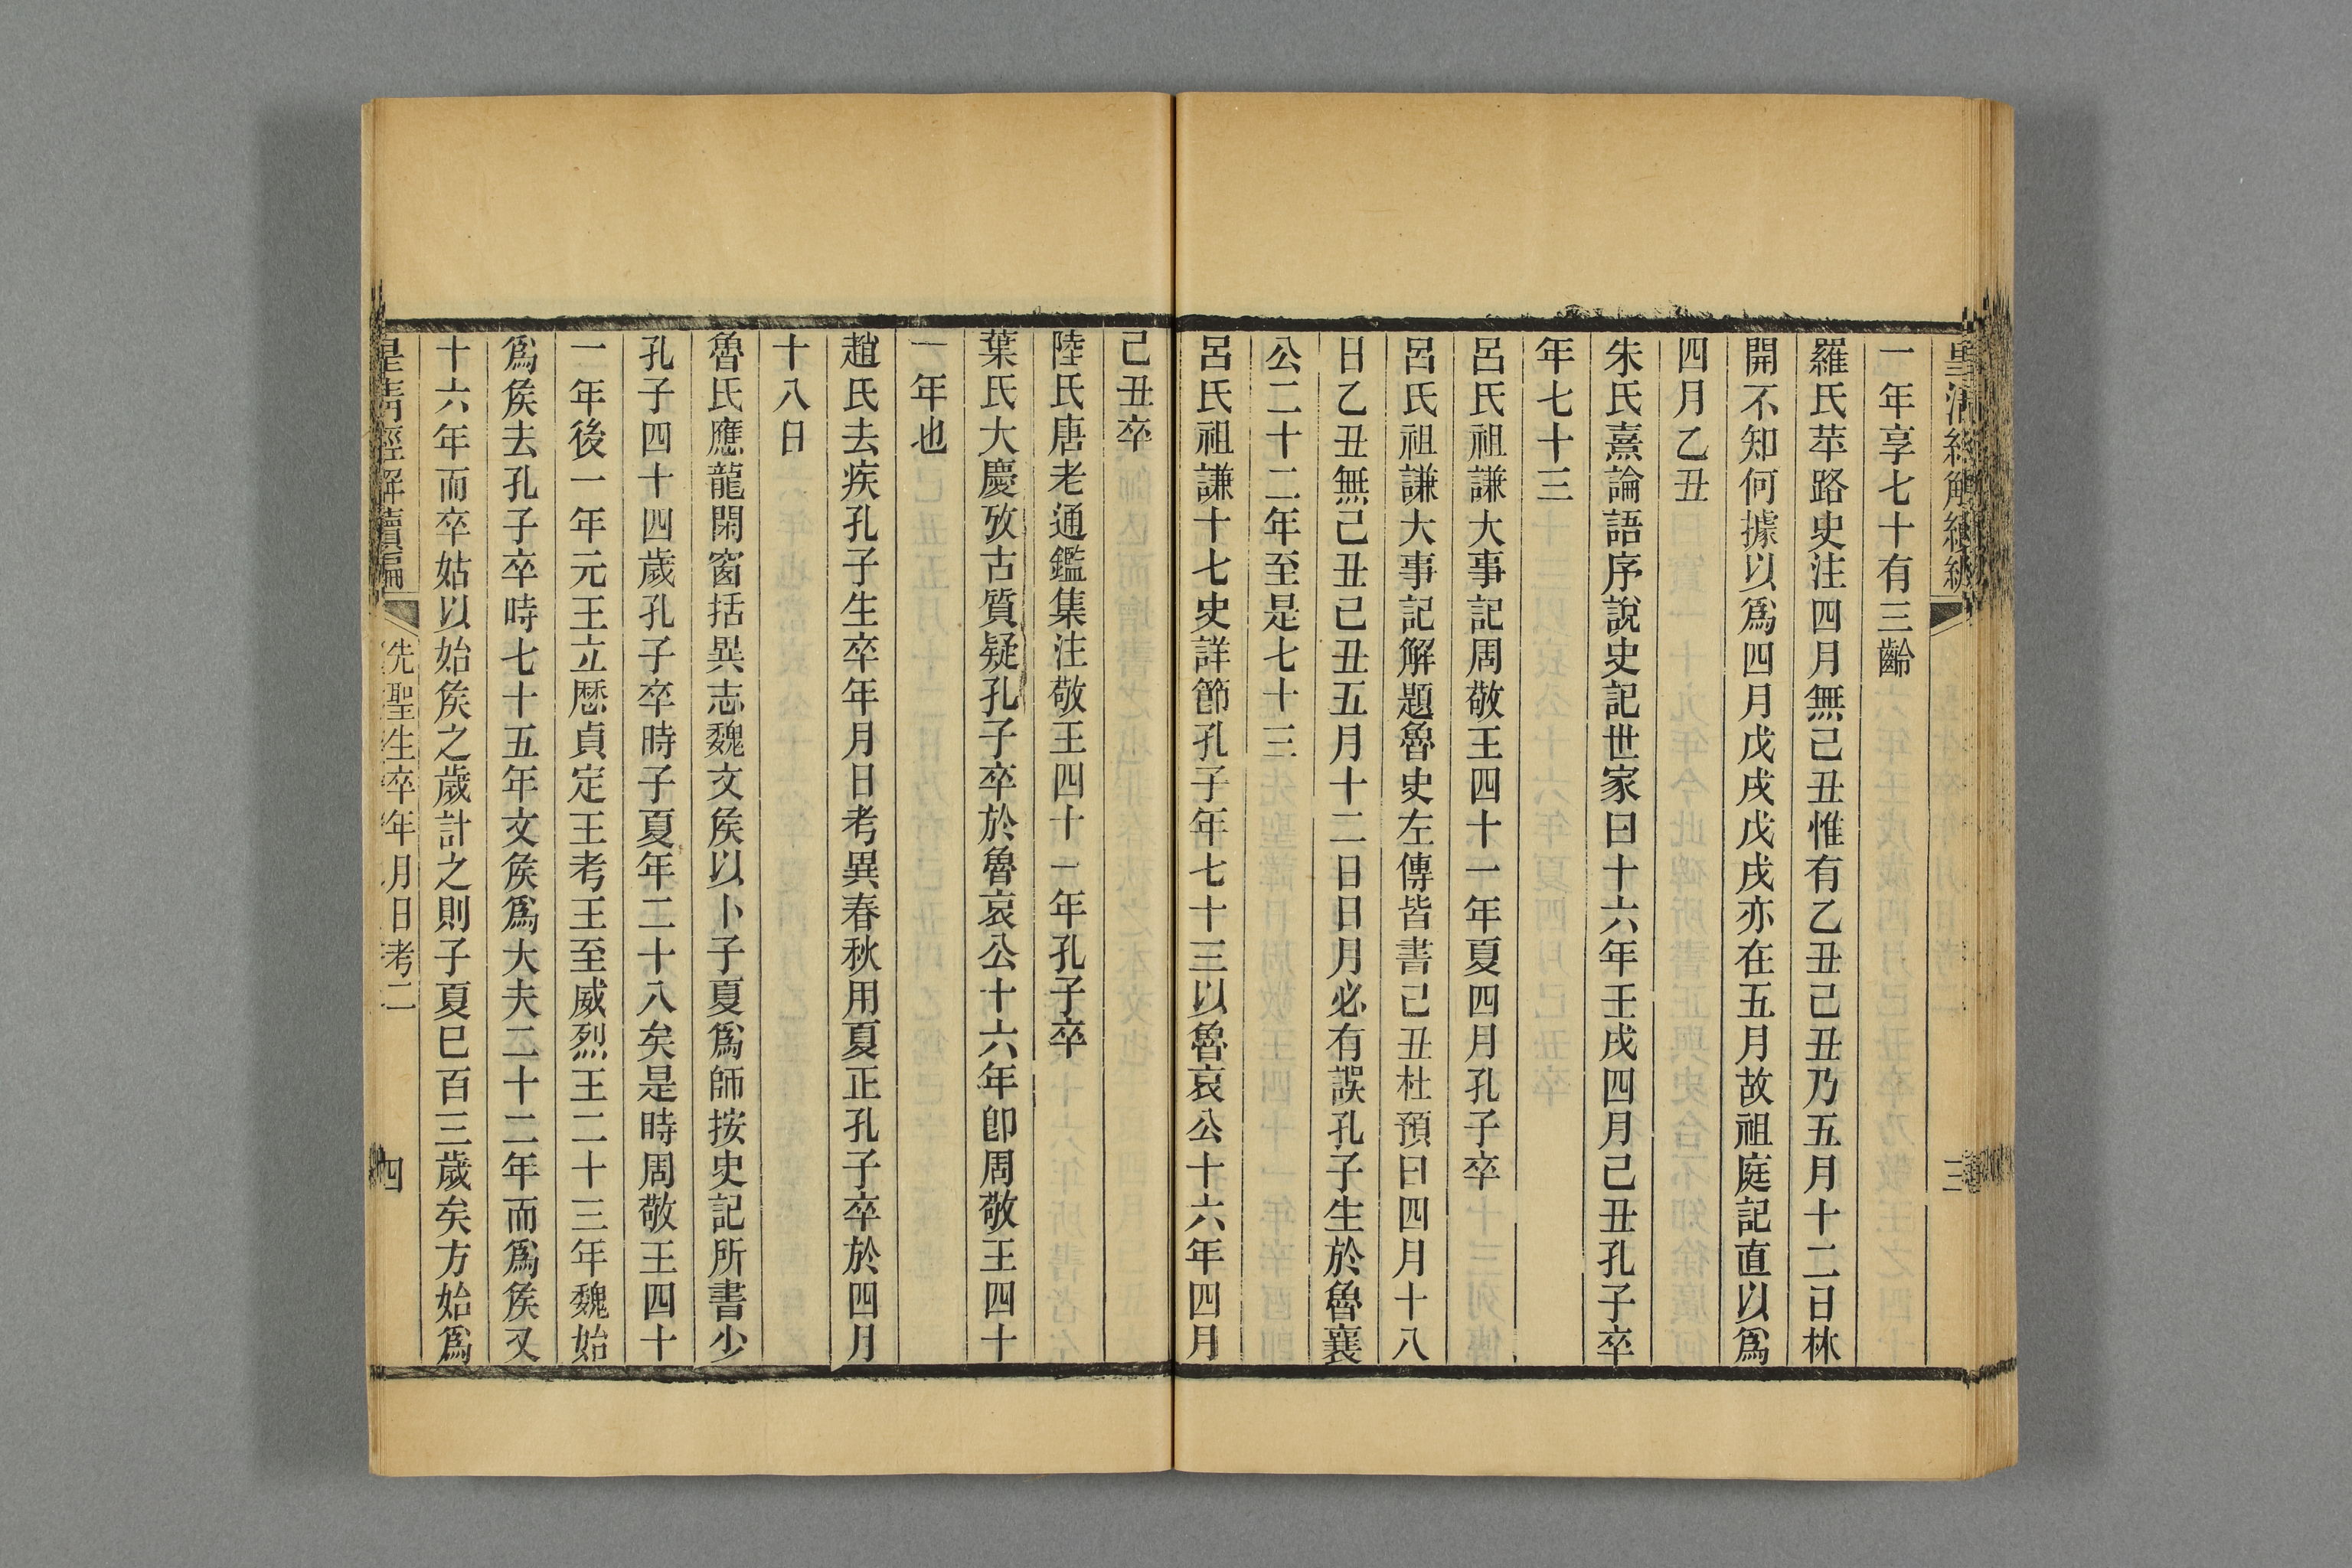 皇清經解續編
三
一年享七十有三齡
羅氏苹路史注四月無己丑惟有乙丑己丑乃五月十二日林
開不知何據以爲四月戊戌戊戌亦在五月故祖庭記直以爲
四月乙丑
朱氏熹論語序說史記世家曰十六年壬戌四月己丑孔子卒
年七十三
呂氏祖謙大事記周敬王四十一年夏四月孔子卒
呂氏祖謙大事記解題魯史左傳皆書己丑杜預曰四月十八
日乙丑無己丑己丑五月十二日日月必有誤孔子生於魯襄
公二十二年至是七十三
呂氏祖謙十七史詳節孔子年七十三以魯哀公十六年四月
己丑卒
陸氏唐老通鑑集注敬王四十一年孔子卒
葉氏大慶攷古質疑孔子卒於魯哀公十六年卽周敬王四十
一年也
趙氏去疾孔子生卒年月日考異春秋用夏正孔子卒於四月
十八日
魯氏應龍閑窗括異志魏文矦以卜子夏爲師按史記所書少
孔子四十四歲孔子卒時子夏年二十八矣是時周敬王四十
一年後一年元王立歷貞定王考王至威烈王二十三年魏始
爲矦去孔子卒時七十五年文矦爲大夫二十二年而爲矦又
十六年而卒姑以始矦之歲計之則子夏巳百三歲矣方始爲
皇清經解續編
先聖生卒年月日考二
四